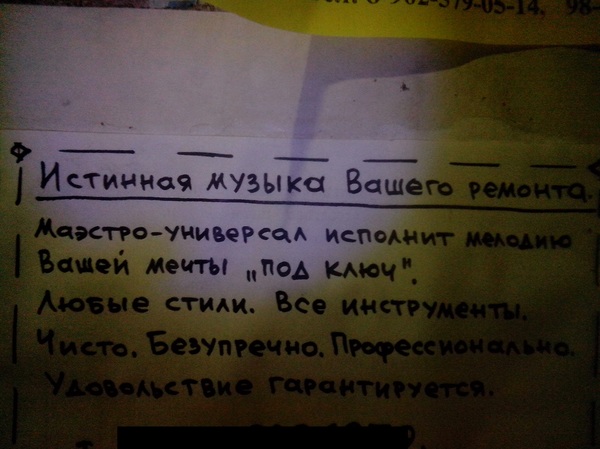 05-14. 98-
Истинная музыка Вашего ремонта.
Маэстро-универсал исполнит мелодию
Вашей мечты „под ключ".
Любые стили. Все инструменты.
Чисто. Безупречно. Профессионально.
Удовольствие гарантируется.